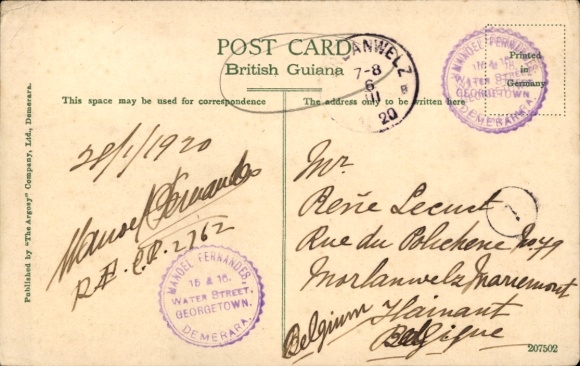 POST CARD
British Guiana
This space may be used for correspondence
The address only to be written here
Printed
in
Germany
LANWELZ
7-8
6
II
20
MANOEL FERNANDES,
15 & 16,
WATER STREET,
GEORGETOWN.
DEMERARA.
28/1/1920
Manoel Fernandes
2762
MANOEL FERNANDES,
15 & 16,
WATER STREET.
GEORGETOWN.
DEMERARA.
Mr
Réné Lecust
Rue du Polichene No 49
Morlanwelz Mariemont
Hainant
Belgium
Belgique
207502
Published by "The Argosy" Company, Ltd., Demerara.